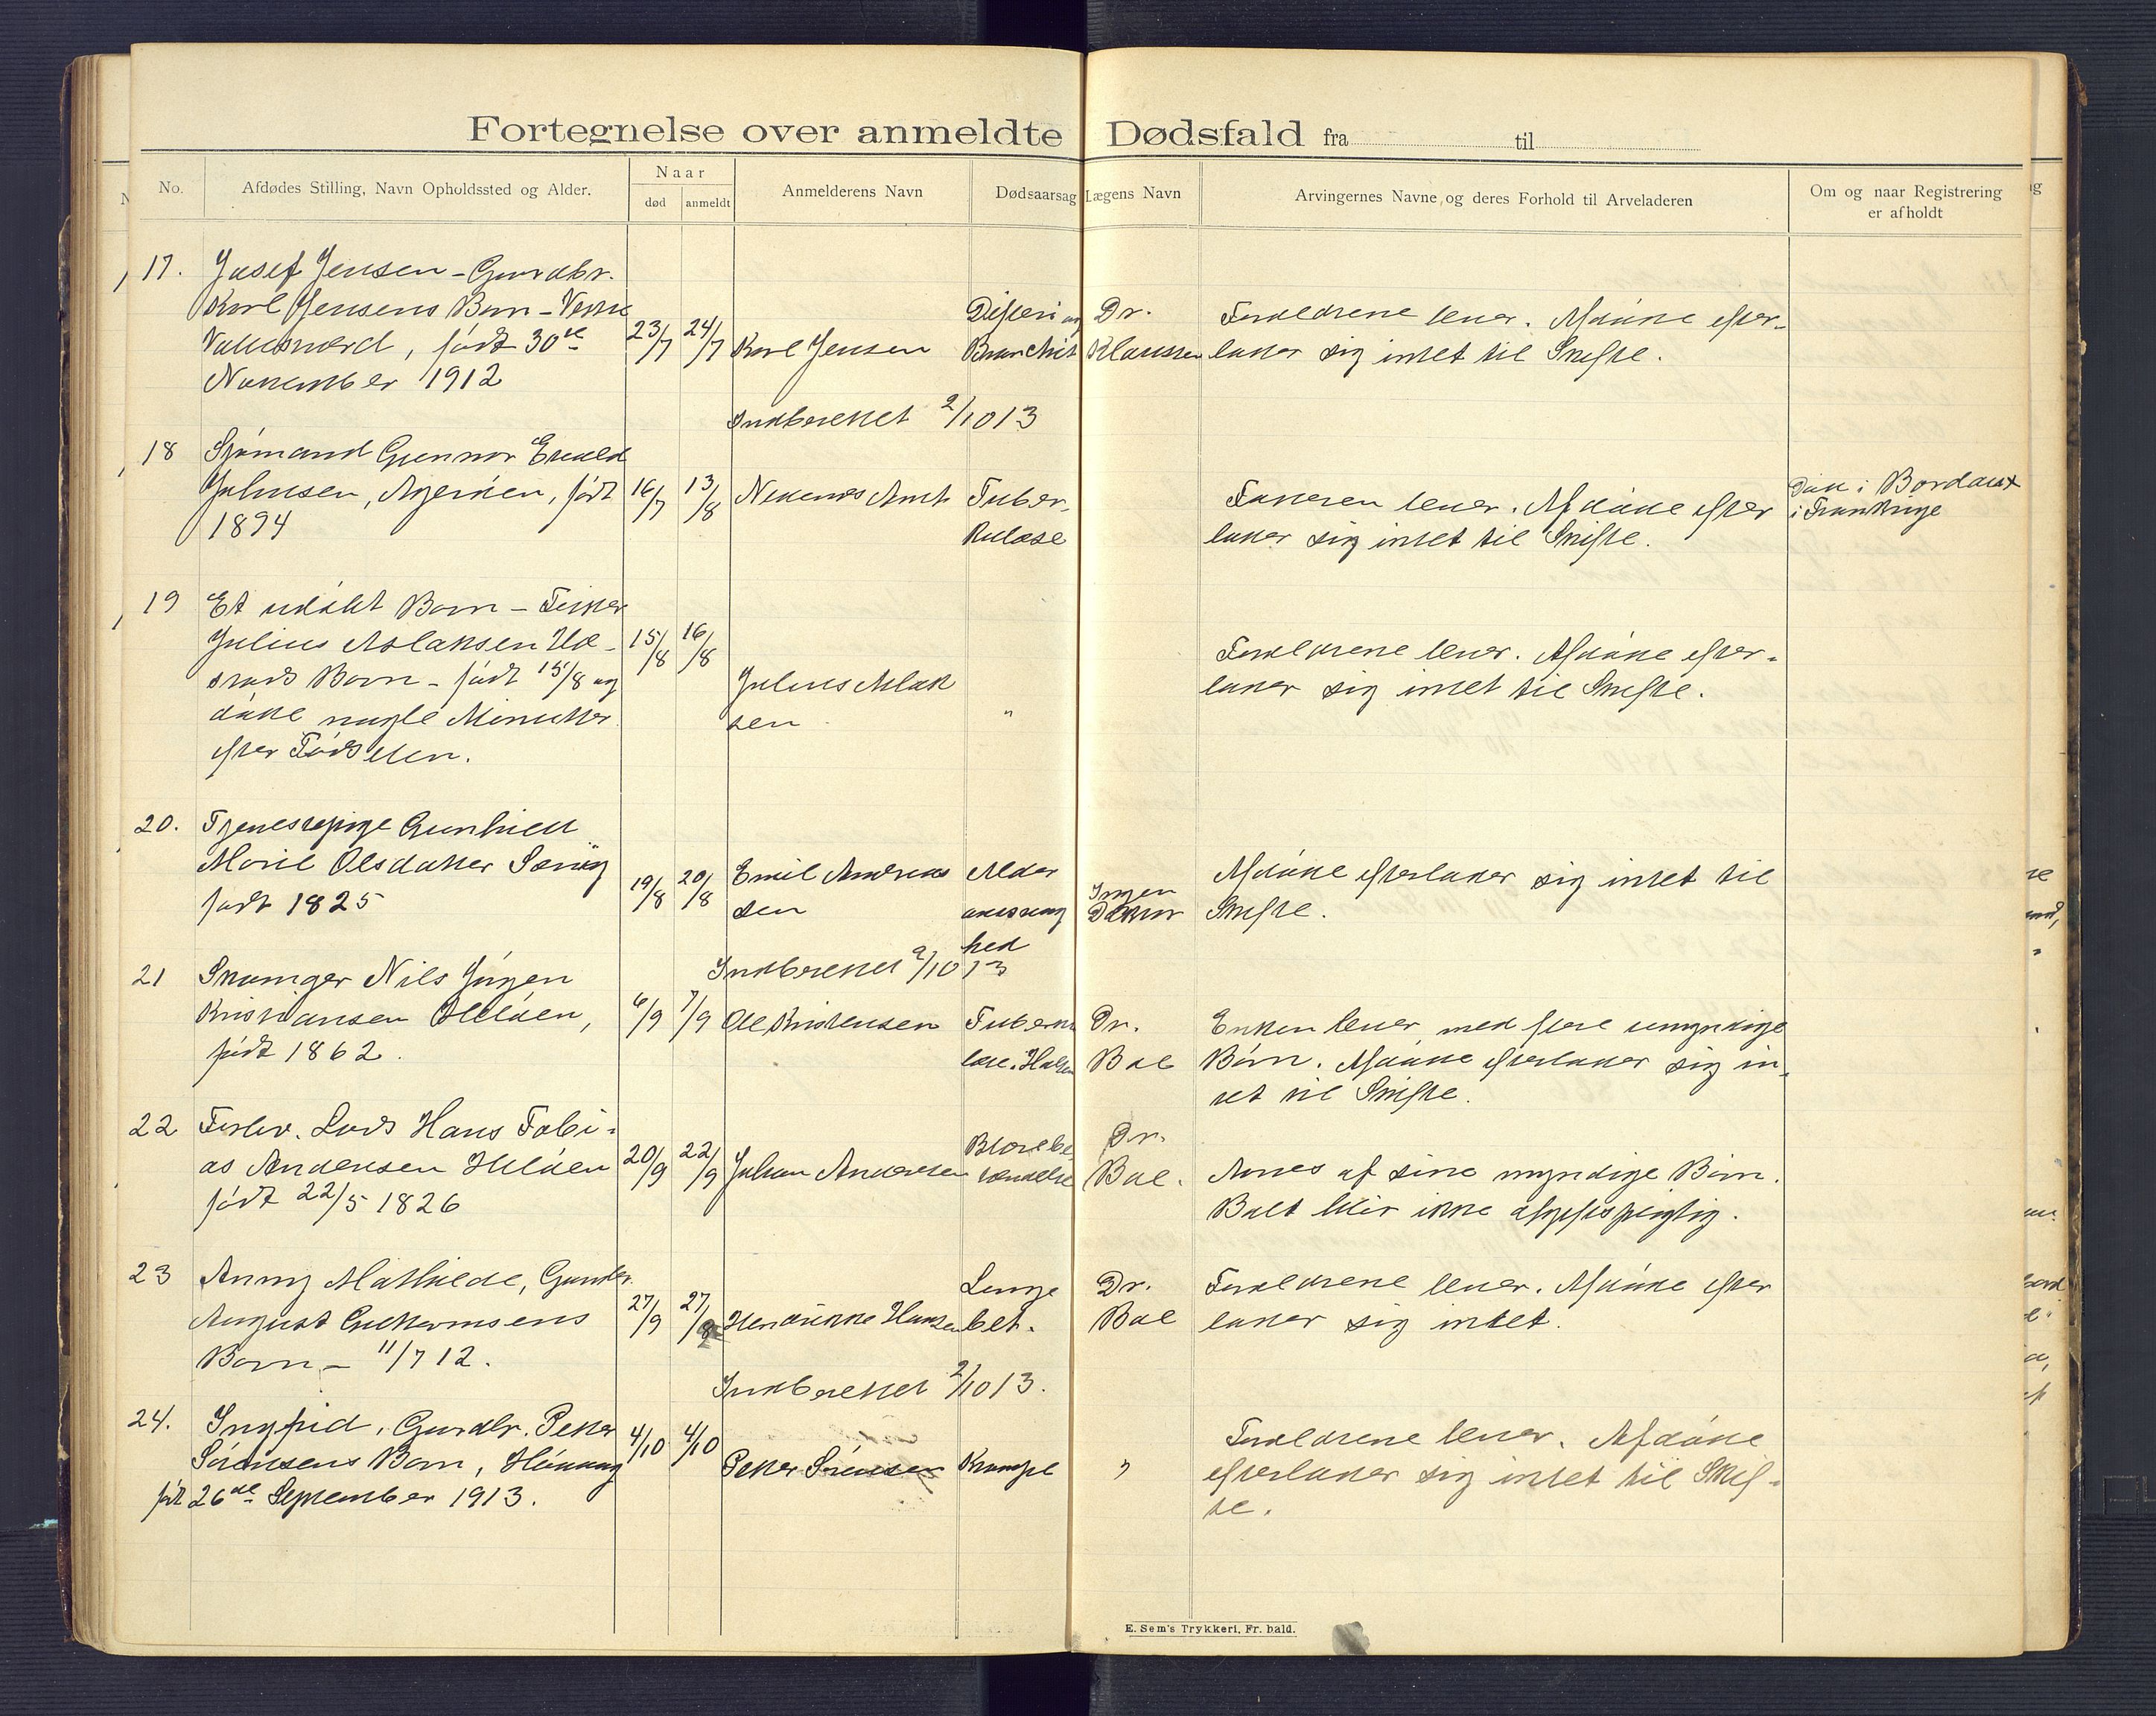 Fortegnelse over anmeldte Dødsfald fra til
No.
Afdødes Stilling, Navn Opholdssted og Alder.
Naar
død
anmeldt
Anmelderens Navn
Dødsaarsag
Lægens Navn
Arvingernes Navne og deres Forhold til Arveladeren
Om og naar Registrering
er afholdt
17.
Josef Jensen - Gurdbr.
Karl Jensens Barn -
født 30te
November 1912
23/7
24/7
Karl Jensen
Difteri og
Bronchit
Dr.
Klaussen
Forældrene lever. Afdøde efter-
lader sig intet til Skifte.
Indberettet 2/10 13
18
Sjømand Gunnar Evald
Johnsen, Agerøen, født
1894
16/7
13/8
Nedenes Amt
Tuber-
kulose
Faderen lever. Afdøde efter
lader sig intet til Skifte.
Død i Bordaux
i Frankrige
19
Et udøbt Barn - Fisker
Julius Aslaksen
Barn - født 15/8 og
døde nogle Minutter
efter Fødselen.
15/8
16/8
Julius Aslak
sen
"
Forældrene lever. Afdøde efter-
lader sig intet til Skifte.
20.
Tjenestepige Gunhild
Marie Olsdatter
født 1825
19/8
20/8
Emil Andreas
sen
Alder
hed
Ingen
Doktor
Afdøde efterlader sig intet til
Skifte.
Indberettet 2/10 13
21
Skomager Nils Jørgen
Kristiansen
født 1862.
6/9
7/9
Ole Kristensen
Tuberku
lose i Halsen
Dr.
Bøe
Enken lever med flere umyndige
Børn. Afdøde efterlader sig in-
tet til Skifte.
22
Forhv. Lods Hans Tobi-
as Andersen
født 22/5 1826
20/9
22/9
Johan Andersen
Blærebe-
tændelse
Dr.
Bøe.
Arves af sine myndige Børn.
Boet blir ikke afgiftspligtig.
23
Anny Mathilde, Gunder
August Guttormsens
Barn - 11/7 12.
27/9
27/9
Hendrikke Hansen
Lunge
bet.
Dr.
Bøe
Forældrene lever. Afdøde efter
lader sig intet.
Indberettet 2/10 13.
24.
Ingfrid, Gurdbr. Peder
Sørensens Barn,
født 26de September 1913.
4/10
4/10
Peder Sørensen
Krampe
"
Forældrene lever. Afdøde
efterlader sig intet til Skif-
te.
E. Sem's Trykkeri, Fr. hald.